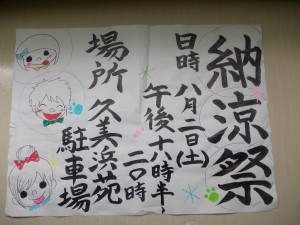 納涼祭
日時 八月二日(土)
午後十八時半~
二〇時
場所 久美浜苑
駐車場